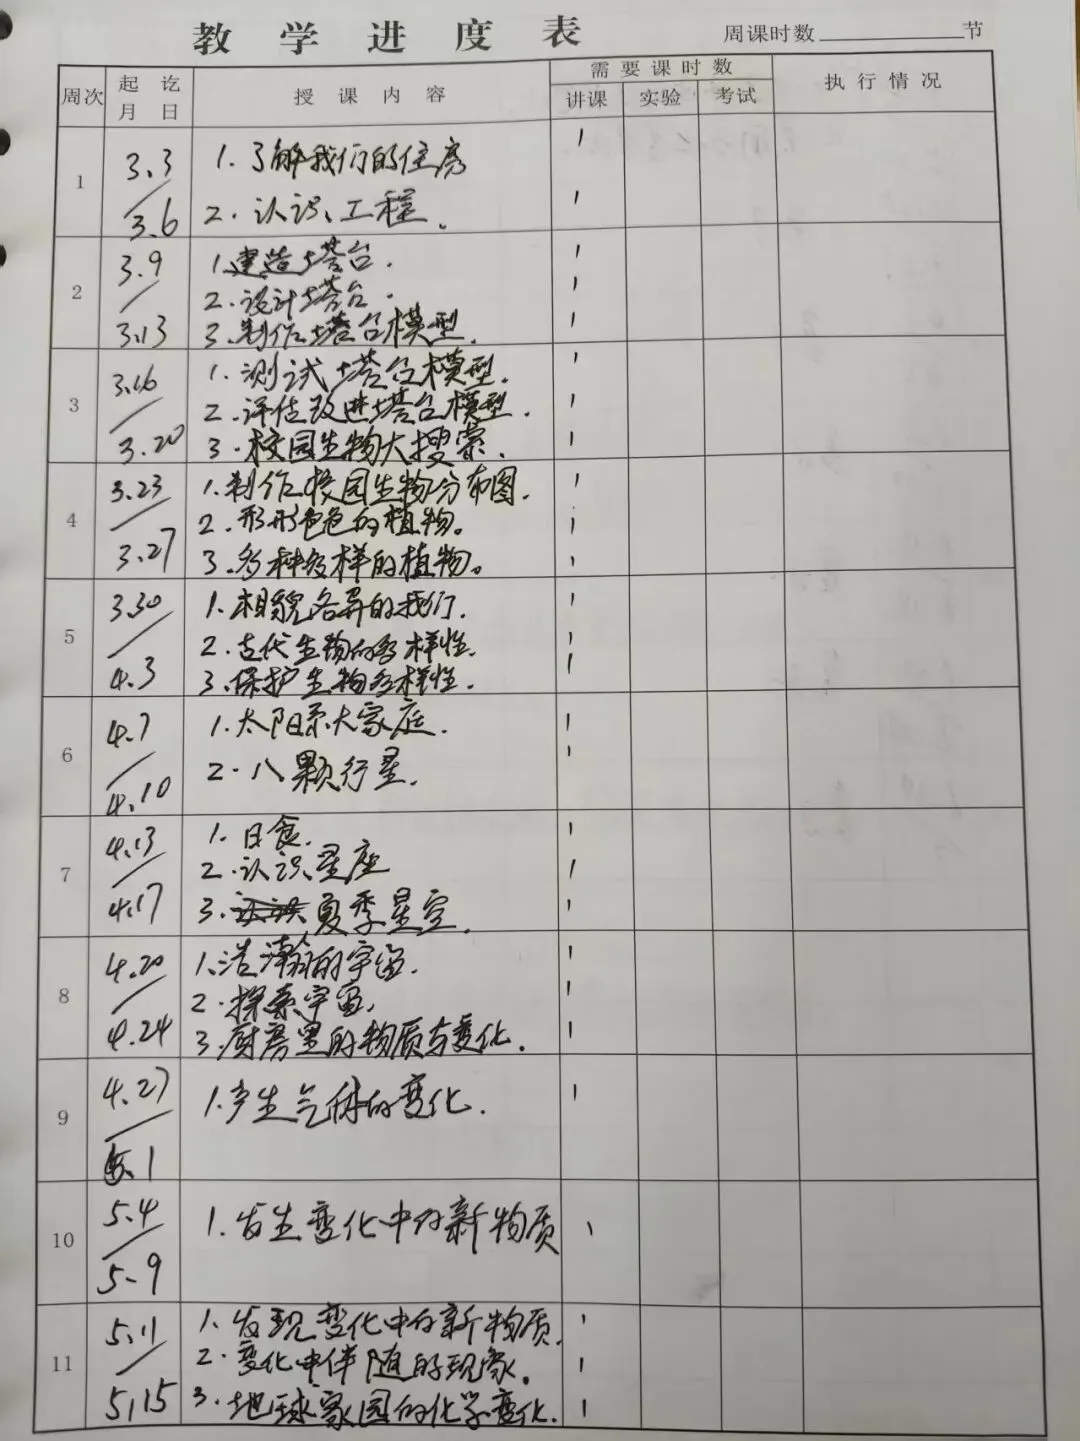 教学进度表
周课时数 节
周次 起讫月日 授课内容 需要课时数 执行情况
讲课 实验 考试
1 3.3/3.6
1.了解我们的住房 1
2.认识工程. 1
2 3.9/3.13
1.建造塔台. 1
2.设计塔台. 1
3.制作塔台模型. 1
3 3.16/3.20
1.测试塔台模型. 1
2.评估改进塔台模型. 1
3.校园生物大搜索. 1
4 3.23/3.27
1.制作校园生物分布图. 1
2.形形色色的植物。 1
3.多种多样的植物。 1
5 3.30/4.3
1.相貌各异的我们. 1
2.古代生物的多样性. 1
3.保护生物多样性. 1
6 4.7/4.10
1.太阳系大家庭. 1
2.八颗行星. 1
7 4.13/4.17
1.日食. 1
2.认识星座 1
3.夏季星空. 1
8 4.20/4.24
1.浩瀚的宇宙. 1
2.探索宇宙. 1
3.厨房里的物质与变化. 1
9 4.27/5.1
1.产生气体的变化. 1
10 5.4/5.9
1.发生变化中的新物质 1
11 5.11/5.15
1.发现变化中的新物质. 1
2.变化中伴随的现象. 1
3.地球家园的化学变化. 1